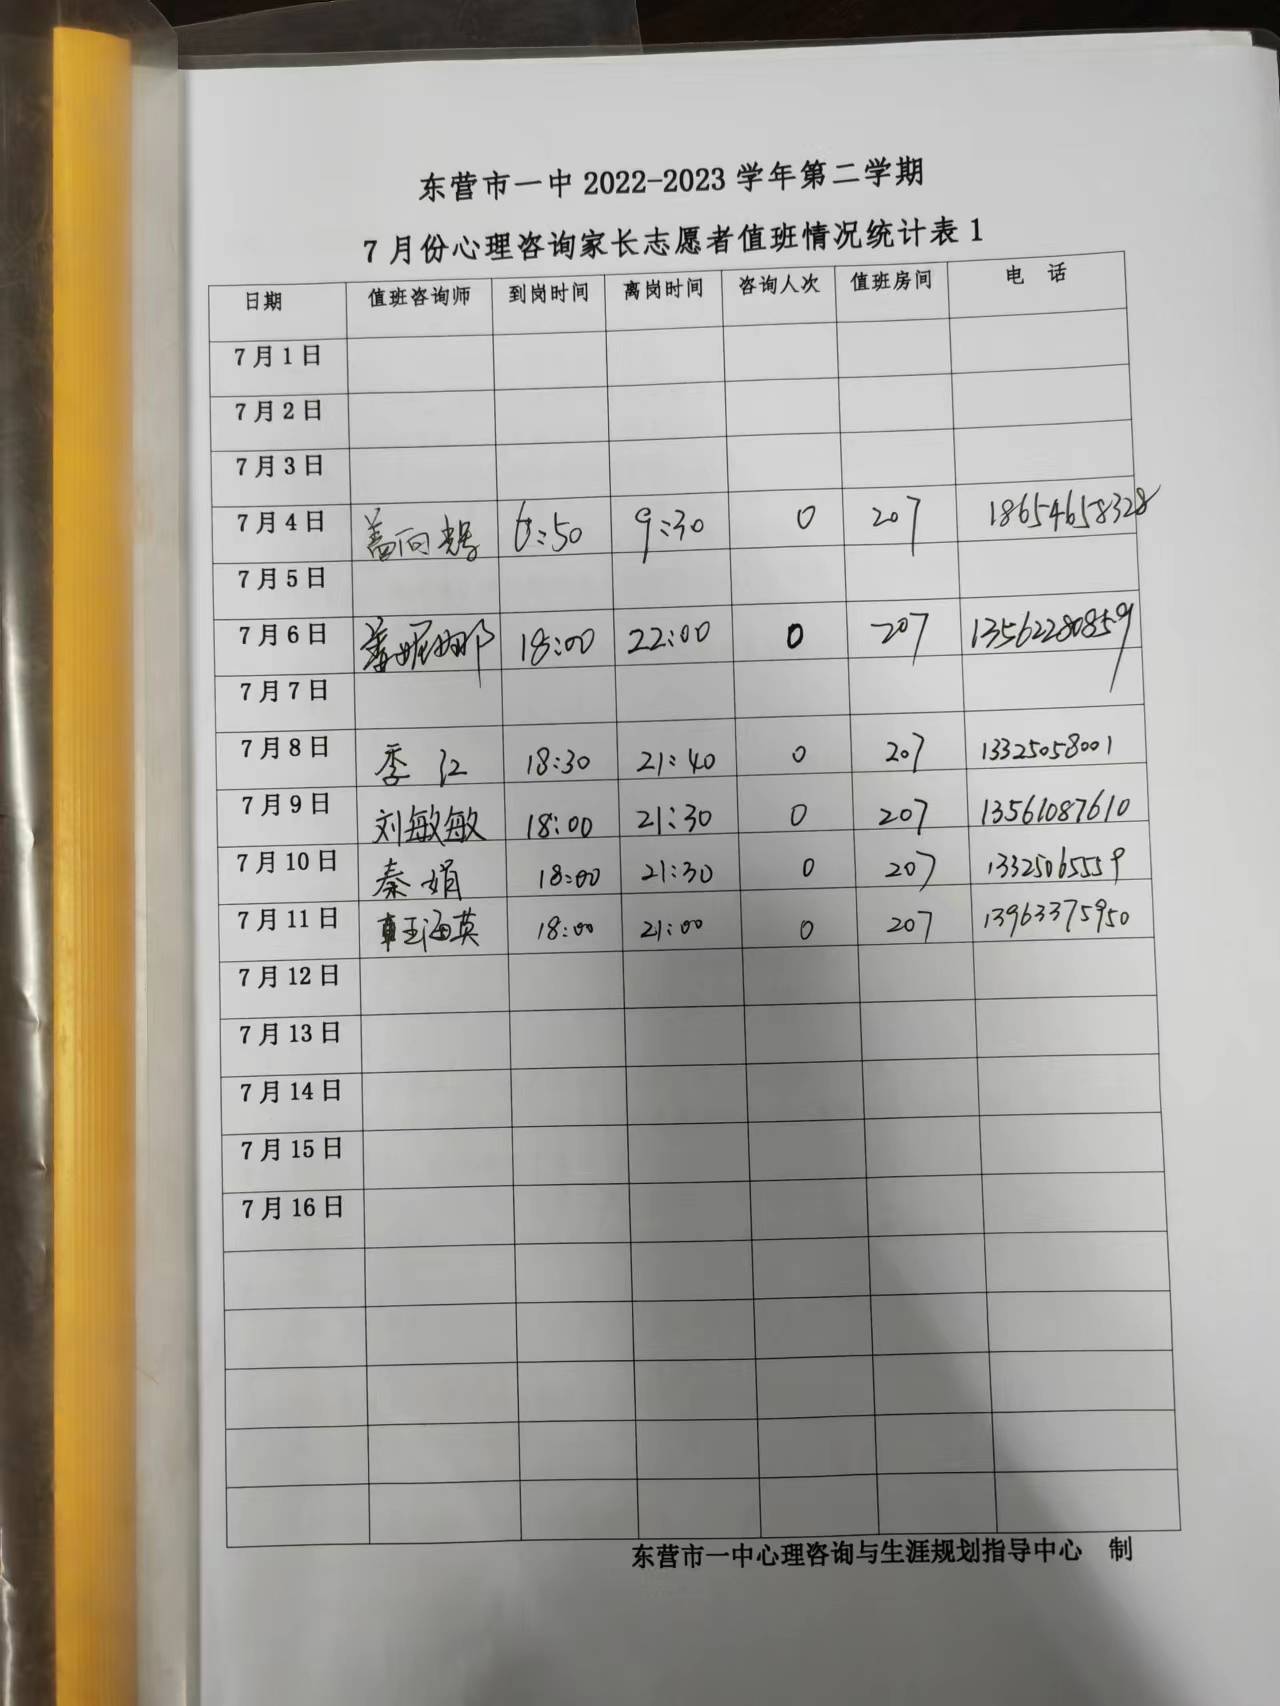 东营市一中 2022-2023 学年第二学期
7 月份心理咨询家长志愿者值班情况统计表 1
日期 值班咨询师 到岗时间 离岗时间 咨询人次 值班房间 电 话
7 月 1 日
7 月 2 日
7 月 3 日
7 月 4 日 盖向 6:50 9:30 0 207 18654658328
7 月 5 日
7 月 6 日 娜 18:00 22:00 0 207 13562280859
7 月 7 日
7 月 8 日 季江 18:30 21:40 0 207 13325058001
7 月 9 日 刘敏敏 18:00 21:30 0 207 13561087610
7 月 10 日 秦娟 18:00 21:30 0 207 13325065559
7 月 11 日 王海英 18:00 21:00 0 207 13963375950
7 月 12 日
7 月 13 日
7 月 14 日
7 月 15 日
7 月 16 日
东营市一中心理咨询与生涯规划指导中心 制